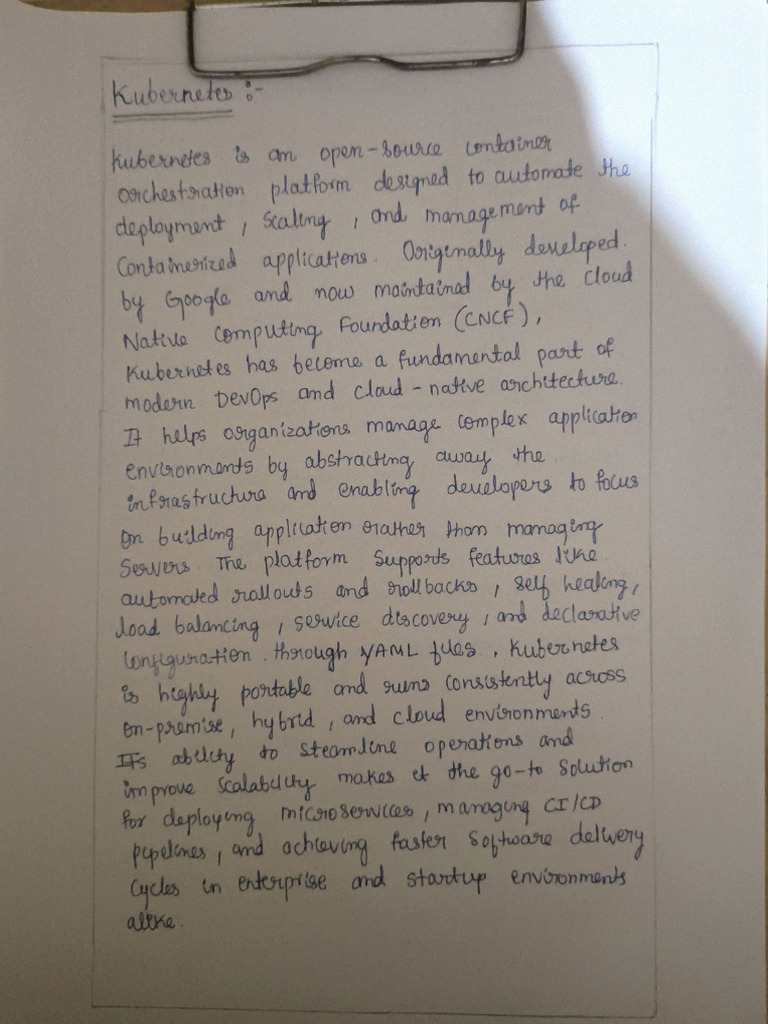 Kubernetes :-
Kubernetes is an open-source container
orchestration platform designed to automate the
deployment, scaling, and management of
Containerized applications. Originally developed.
by Google and now maintained by the Cloud
Native Computing Foundation (CNCF),
Kubernetes has become a fundamental part of
modern DevOps and cloud-native architecture.
It helps organizations manage complex application
environments by abstracting away the
infrastructure and enabling developers to focus
on building application rather than managing
Servers. The platform supports features like
automated rollouts and rollbacks, self healing,
load balancing, service discovery, and declarative
configuration through YAML files. Kubernetes
is highly portable and runs consistently across
on-premise, hybrid, and cloud environments.
Its ability to steamline operations and
improve scalability makes it the go-to solution
for deploying microservices, managing CI/CD
pipelines, and achieving faster software delivery
cycles in enterprise and startup environments
alike.